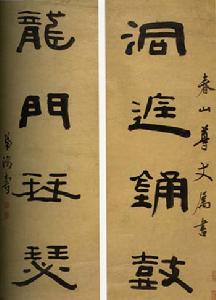 洞庭鏞鼓
春山尊丈屬書
龍門琴瑟